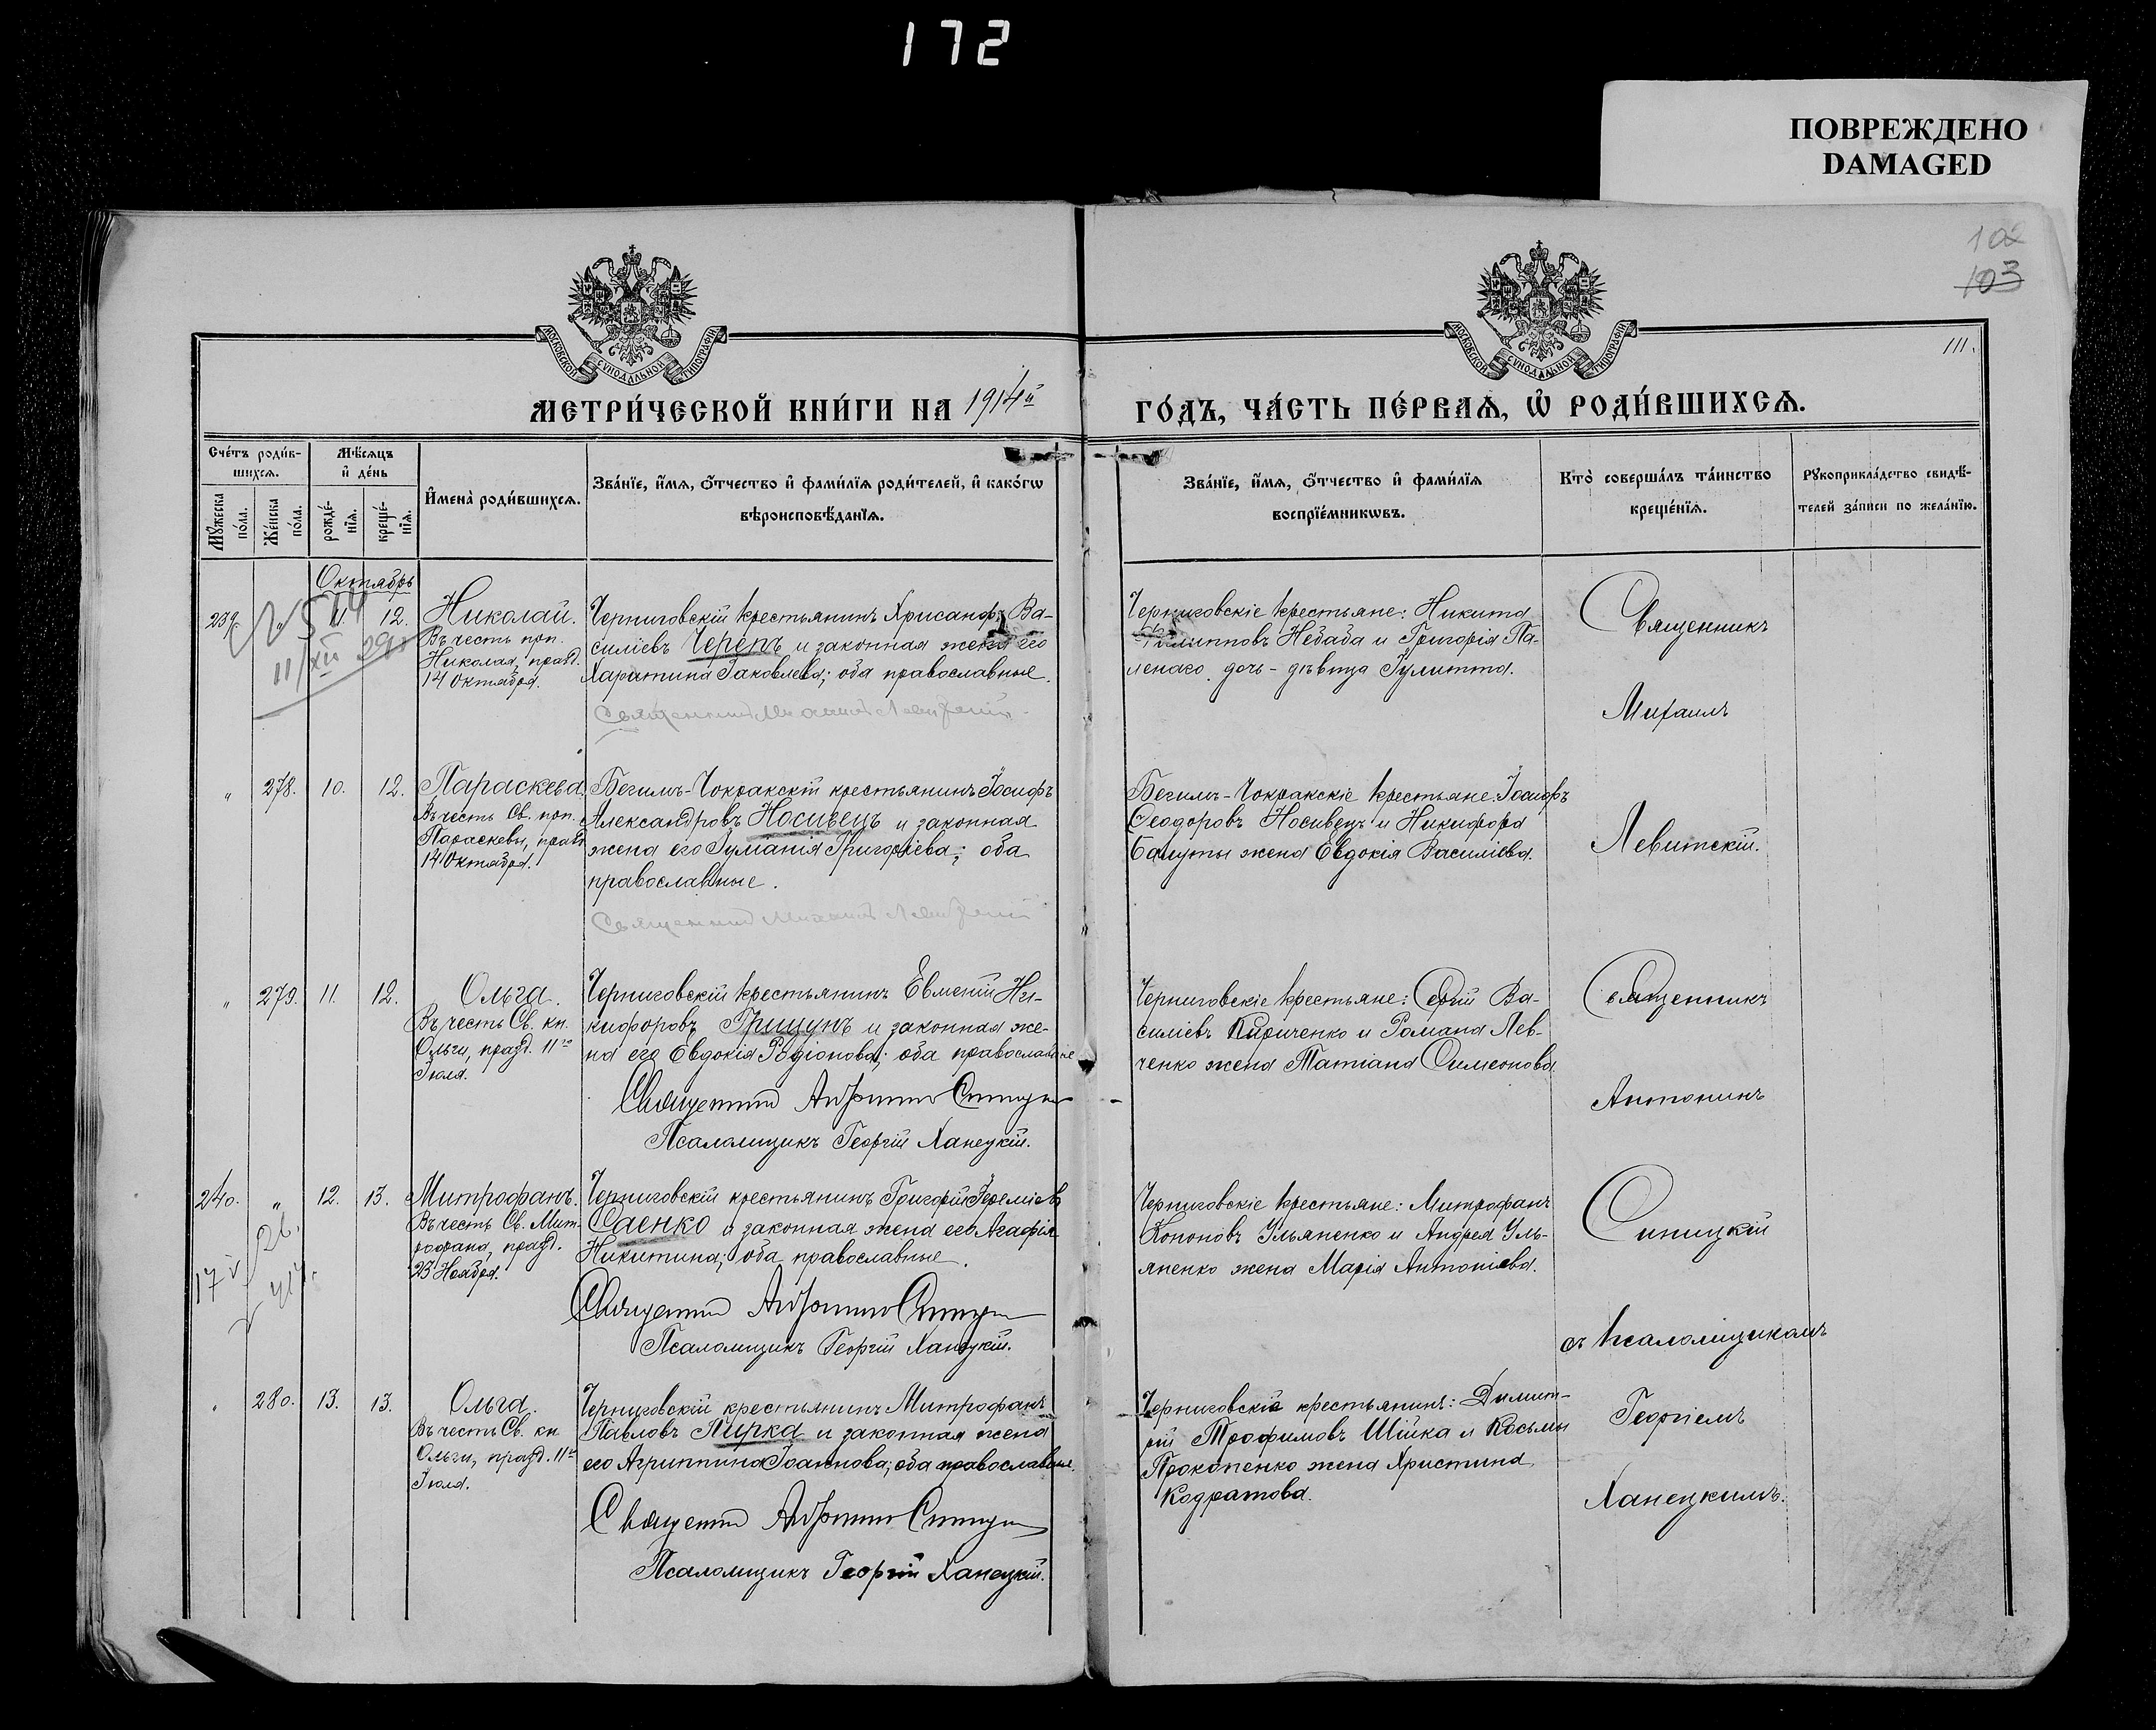 172
ПОВРЕЖДЕНО
DAMAGED
103
111.
МОСКОВСКОЙ СѴНОДАЛЬНОЙ ТИПОГРАФІИ
МОСКОВСКОЙ СѴНОДАЛЬНОЙ ТИПОГРАФІИ
МЕТРИ́ЧЕСКОЙ КНИ́ГИ НА 1914й
ГО́ДЪ, ЧА́СТЬ ПЕ́РВАѦ, Ѡ҆ РОДИ́ВШИХСѦ.
Сче́тъ роди́в-
шихсѧ.
Мꙋжеска по́ла.
Же́нска по́ла.
Мѣ́сѧцъ
и҆ де́нь
рожде́-
нїѧ.
креще́-
нїѧ.
И҆мена̀ роди́вшихсѧ.
Зва́нїе, и҆́мѧ, ѻ҆́тчество и҆ фами́лїѧ роди́телей, и҆ како́гѡ
вѣроисповѣ́данїѧ.
Зва́нїе, и҆́мѧ, ѻ҆́тчество и҆ фами́лїѧ
воспрїе́мникѡвъ.
Кто̀ соверша́лъ та́инство
креще́нїѧ.
Рꙋкоприкла́дство свидѣ́-
телей за́писи по жела́нїю.
Октябрь
239. " 11. 12.
Николай.
Въ честь преп.
Николая, празд.
14 Октября.
Черниговскій крестьянинъ Хрисанфъ Ва-
силіевъ Черепъ и законная жена его
Харитина Іаковлева; оба православные.
Священникъ Михаилъ Левитскій
Черниговскіе крестьяне: Никита
Филипповъ Небаба и Григорія Па-
ленаго дочь - дѣвица Іулитта.
Священникъ
Михаилъ
" 278. 10. 12.
Параскева.
Въ честь Св. преп.
Параскевы, празд.
14 Октября.
Бегимъ-Чокракскій крестьянинъ Іосифъ
Александровъ Носивецъ и законная
жена его Іуліанія Григоріева; оба
православные.
Священникъ Михаилъ Левитскій
Бегимъ-Чокракскіе крестьяне: Іосифъ
Ѳеодоровъ Носивецъ и Никифора
жена Евдокія Василіева.
Левитскій.
" 279. 11. 12.
Ольга.
Въ честь Св. кн.
Ольги, празд. 11го
Іюля.
Черниговскій крестьянинъ Евменій Ни-
кифоровъ Грицунъ и законная же-
на его Евдокія Родіонова; оба православные
Священникъ Антонинъ Синицкій
Псаломщикъ Георгій Ханецкій.
Черниговскіе крестьяне: Сергій Ва-
силіевъ Кириченко и Романа Лев-
ченко жена Татіана Симеонова
Священникъ
Антонинъ
240. " 12. 13.
Митрофанъ.
Въ честь Св. Мит-
рофана, празд.
23 Ноября.
Черниговскій крестьянинъ Григорій Іереміевъ
Саенко и законная жена его Агафія
Никитина; оба православные.
Священникъ Антонинъ Синицкій
Псаломщикъ Георгій Ханецкій.
Черниговскіе крестьяне: Митрофанъ
Кононовъ Ульяненко и Андрея Уль-
яненко жена Марія Антоніева.
Синицкій
съ псаломщикомъ
" 280. 13. 13.
Ольга.
Въ честь Св. кн.
Ольги, празд. 11го
Іюля.
Черниговскій крестьянинъ Митрофанъ
Павловъ Пирка и законная жена
его Агриппина Іоаннова; оба православные.
Священникъ Антонинъ Синицкій
Псаломщикъ Георгій Ханецкій.
Черниговскіе крестьянинъ: Димит-
рій Трофимовъ Шійка и Косьмы
Прокопенко жена Христина
Кодратова.
Георгіемъ
Ханецкимъ.